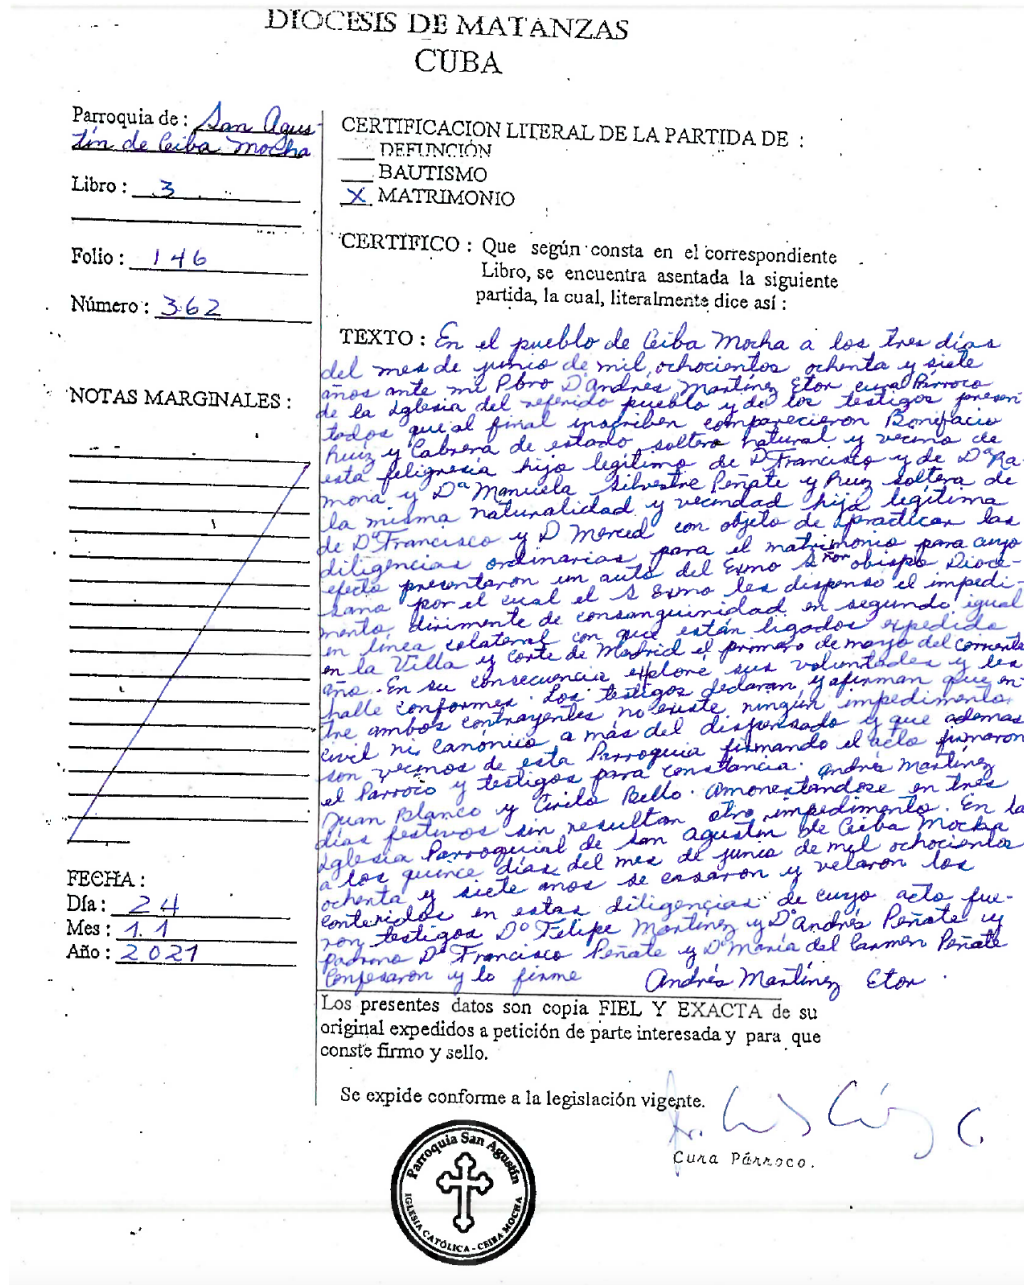 DIOCESIS DE MATANZAS
CUBA
Parroquia de : San Agus-
tín de Ceiba Mocha
Libro : 3
Folio : 146
Número : 362
NOTAS MARGINALES :
FECHA :
Día : 24
Mes : 11
Año : 2021
CERTIFICACION LITERAL DE LA PARTIDA DE :
DEFUNCIÓN
BAUTISMO
X MATRIMONIO
CERTIFICO : Que según consta en el correspondiente
Libro, se encuentra asentada la siguiente
partida, la cual, literalmente dice así :
TEXTO : En el pueblo de Ceiba Mocha a los tres días
del mes de junio de mil ochocientos ochenta y siete
años ante mi Pbro D. Andrés Martínez Etor cura Párroco
de la Iglesia del referido pueblo y de los testigos presen
tados que al final inscriben comparecieron Bonifacio
Ruiz y Cabrera de estado soltero natural y vecino de
esta feligresia hijo legítimo de Dn Francisco y de Da Ra-
mona y Da Manuela Silvestre Peñate y Ruiz soltera de
la misma naturalidad y vecindad hija legítima
de Dn Francisco y D Merced con objeto de practicar las
diligencias ordinarias para el matrimonio para cuyo
efecto presentaron un auto del Exmo Sñor obispo Dioce-
sano por el cual el S Exmo les dispenso el impedi-
mento dirimente de consanguinidad en segundo igual
en línea colateral con que están ligados expedido
en la Villa y corte de Madrid el primero de mayo del corriente
año. En su consecuencia exploré sus voluntades y les
halle conformes. Los testigos declaran y afirman que en-
tre ambos contrayentes no existe ningún impedimento
civil ni canónico a más del dispensado y que ademas
son vecinos de esta Parroquia firmando el acto firmaron
el Parroco y testigos para constancia. Andrés Martínez
Juan Blanco y Cirilo Bello. Amonestandose en tres
días festivos sin resultar otro impedimento. En la
Iglesia Parroquial de San Agustín de Ceiba Mocha
a los quince días del mes de junio de mil ochocientos
ochenta y siete años se casaron y velaron los
contenidos en estas diligencias de cuyo acto fue-
ron testigos Do Felipe Martínez y Do Andrés Peñate y
padrino Do Francisco Peñate y Da María del Carmen Peñate
Confesaron y lo firme Andrés Martínez Etor.
Los presentes datos son copia FIEL Y EXACTA de su
original expedidos a petición de parte interesada y para que
conste firmo y sello.
Se expide conforme a la legislación vigente.
Cura Párroco.
Parroquia San Agustín
IGLESIA CATÓLICA - CEIBA MOCHA